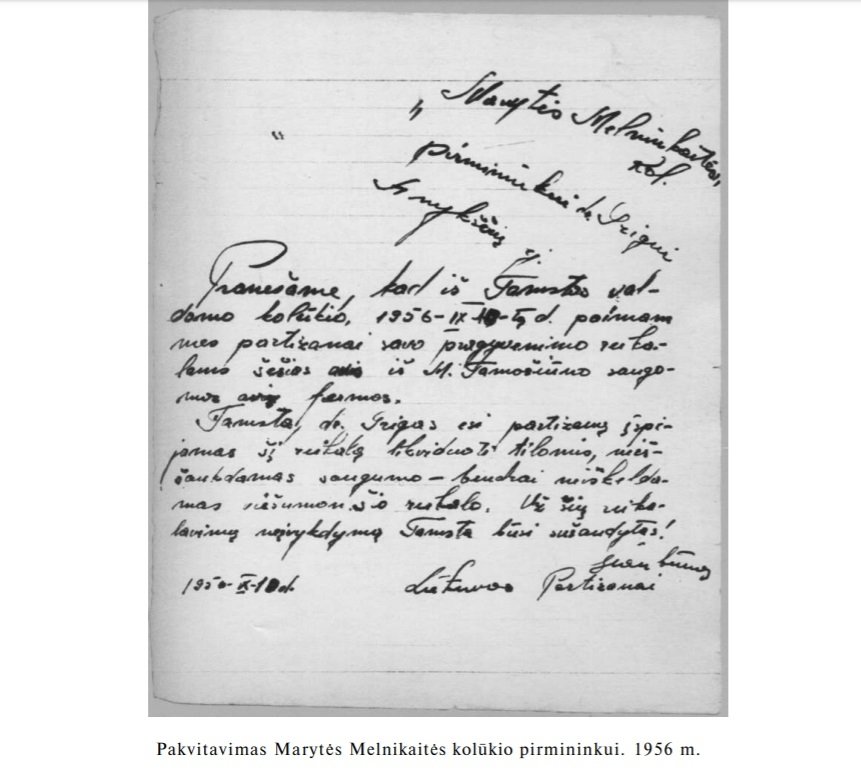 „Marytės Melninkaitės"
kol.
pirmininkui dr. Grigui
Anykščių rj.
Pranešame, kad iš Tamstos val-
damo kolūkio, 1956-IX-10-tą d. paimam
mes partizanai savo pragyvenimo reika-
lams šešias avis iš M. Tamošiūno saugo-
mos avių fermos.
Tamsta, dr. Grigas esi partizanų įspė-
jamas šį reikalą likviduoti tylomis, neiš-
šaukdamas saugumo – bendrai neiškelda-
mas viešumon šio reikalo. Už šių reika-
lavimų neįvykdymą Tamsta būsi sušaudytas!
1956-IX-10d. Lietuvos Partizanai
Pakvitavimas Marytės Melnikaitės kolūkio pirmininkui. 1956 m.